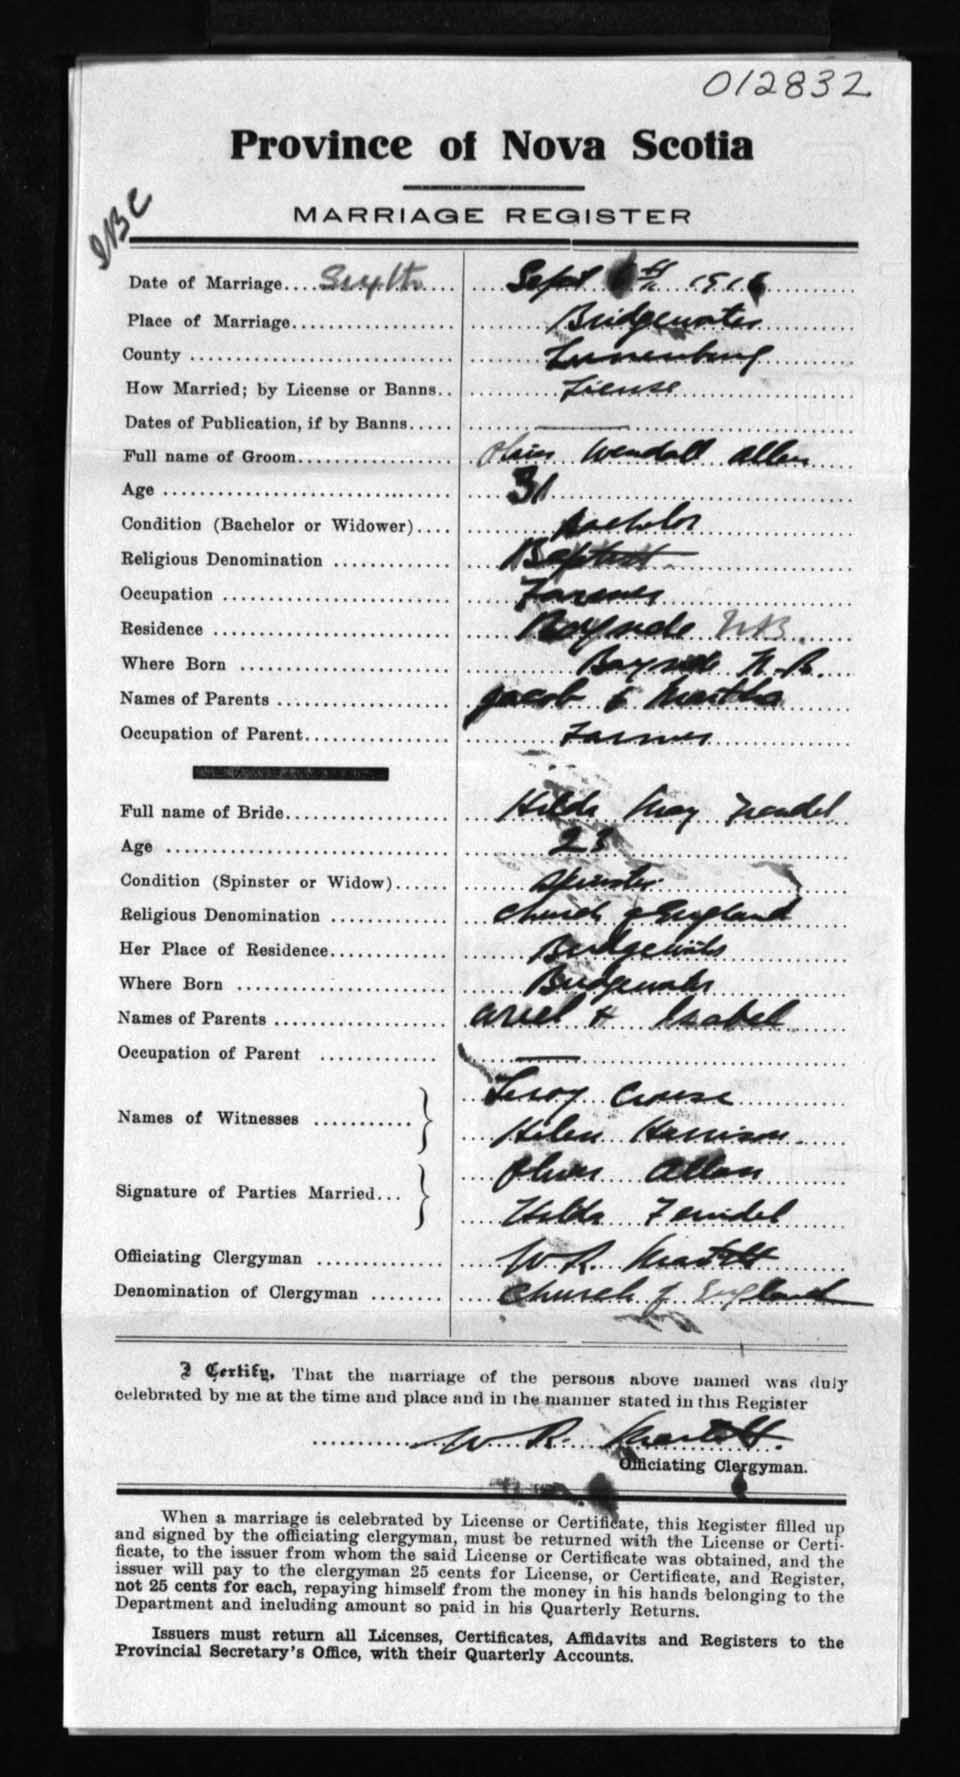 012832
Province of Nova Scotia
MARRIAGE REGISTER
Date of Marriage.... Sept 1916
Place of Marriage Bridgewater
County Lunenburg
How Married; by License or Banns.. License
Dates of Publication, if by Banns
Full name of Groom Wendall Allen
Age 31
Condition (Bachelor or Widower) Bachelor
Religious Denomination Baptist
Occupation Farmer
Residence Bayside N.B.
Where Born Bayside N.B.
Names of Parents Jacob & Martha
Occupation of Parent Farmer
Full name of Bride Hilda May
Age 23
Condition (Spinster or Widow) Spinster
Religious Denomination Church of England
Her Place of Residence Bridgewater
Where Born Bridgewater
Names of Parents & Isabel
Occupation of Parent
Names of Witnesses Leroy Crouse
Helen Harrison
Signature of Parties Married... Allen
Hilda
Officiating Clergyman W R.
Denomination of Clergyman Church of England
I Certify, That the marriage of the persons above named was duly
celebrated by me at the time and place and in the manner stated in this Register
W R.
Officiating Clergyman.
When a marriage is celebrated by License or Certificate, this Register filled up
and signed by the officiating clergyman, must be returned with the License or Certi-
ficate, to the issuer from whom the said License or Certificate was obtained, and the
issuer will pay to the clergyman 25 cents for License, or Certificate, and Register,
not 25 cents for each, repaying himself from the money in his hands belonging to the
Department and including amount so paid in his Quarterly Returns.
Issuers must return all Licenses, Certificates, Affidavits and Registers to the
Provincial Secretary's Office, with their Quarterly Accounts.